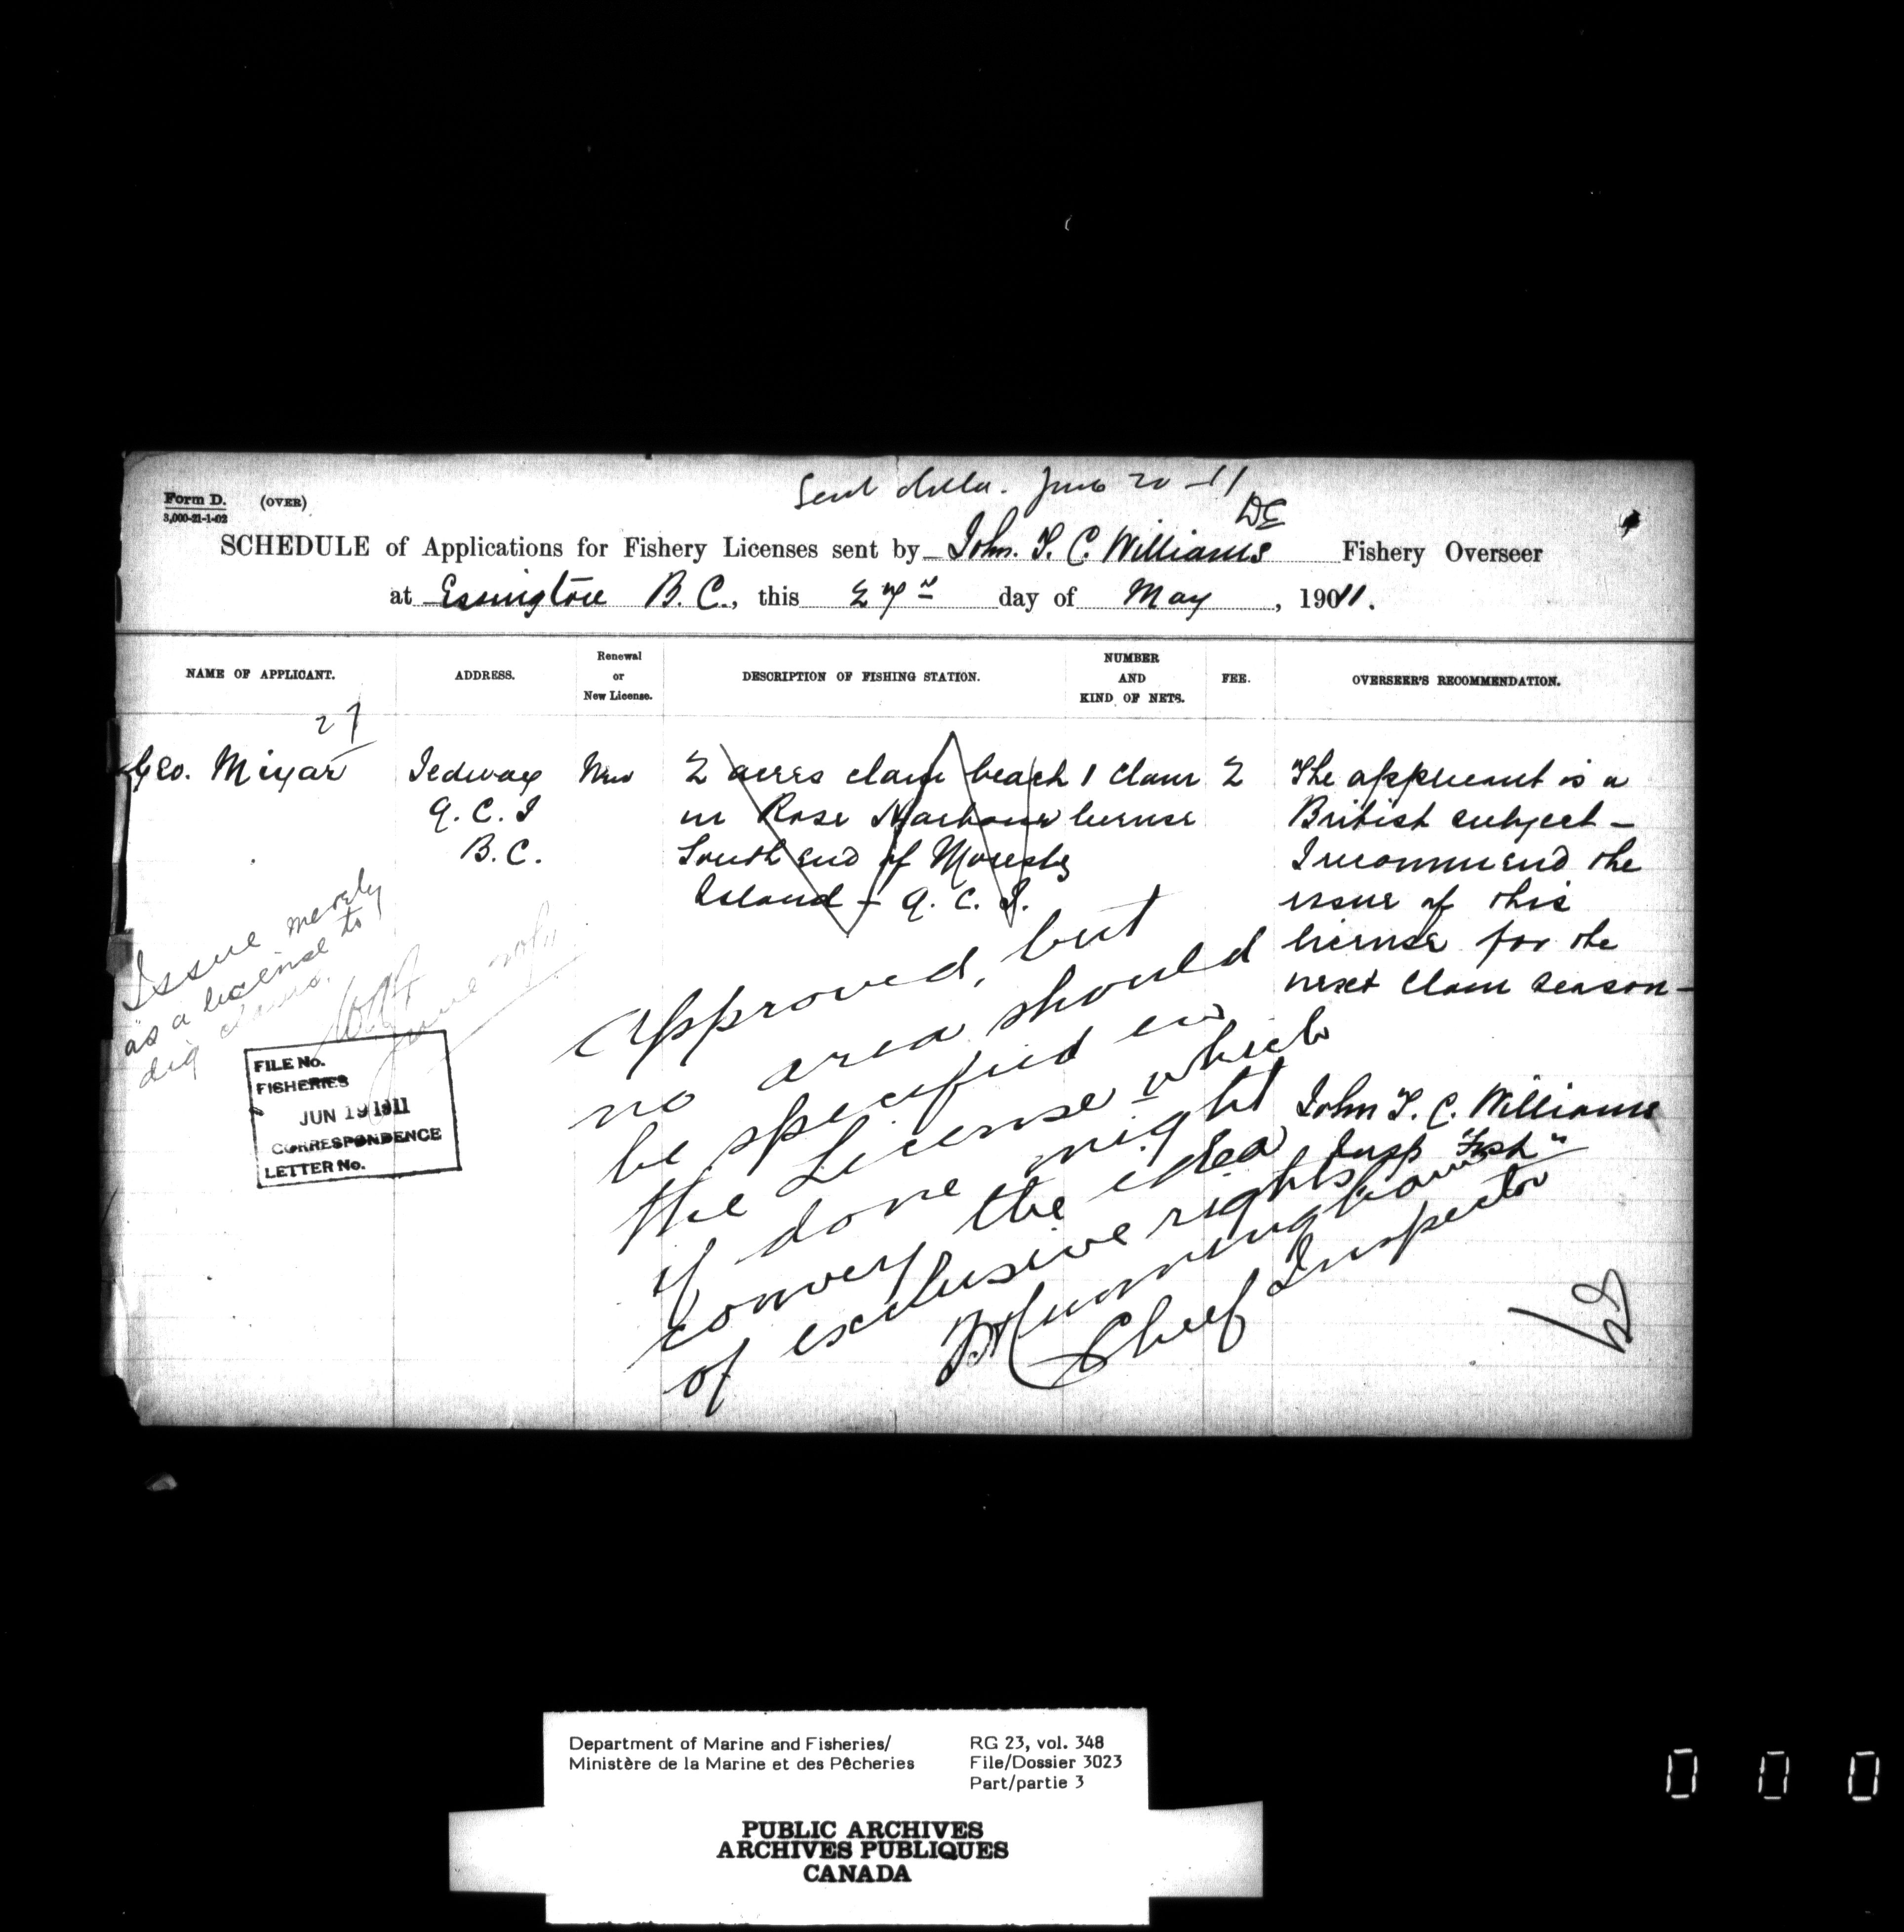 Form D. (OVER)
3,000-21-1-02
Sent June 20-11
DE
SCHEDULE of Applications for Fishery Licenses sent by John. T. C. Williams Fishery Overseer
at Essington B. C., this 27 day of May, 19011.
NAME OF APPLICANT.
ADDRESS.
Renewal
or
New License.
DESCRIPTION OF FISHING STATION.
NUMBER
AND
KIND OF NETS.
FEE.
OVERSEER'S RECOMMENDATION.
27
Geo. Miyar
Jedway
Q. C. I
B. C.
New
2 acres clam beach
in Rose Harbour
South end of Moresby
Island - Q. C. I.
1 Clam
license
2
The applicant is a
British subject -
I recommend the
issue of this
license for the
next clam season -
John T. C. Williams
Insp Fish
Issue merely
as a license to
dig clams.
June
FILE No.
FISHERIES
JUN 19 1911
CORRESPONDENCE
LETTER No.
Approved, but
no area should
be specified in
the License which
if done might
convey the idea
of exclusive rights
Cunningham
Chief Inspector
Department of Marine and Fisheries/
Ministère de la Marine et des Pêcheries
RG 23, vol. 348
File/Dossier 3023
Part/partie 3
PUBLIC ARCHIVES
ARCHIVES PUBLIQUES
CANADA
0 0 0